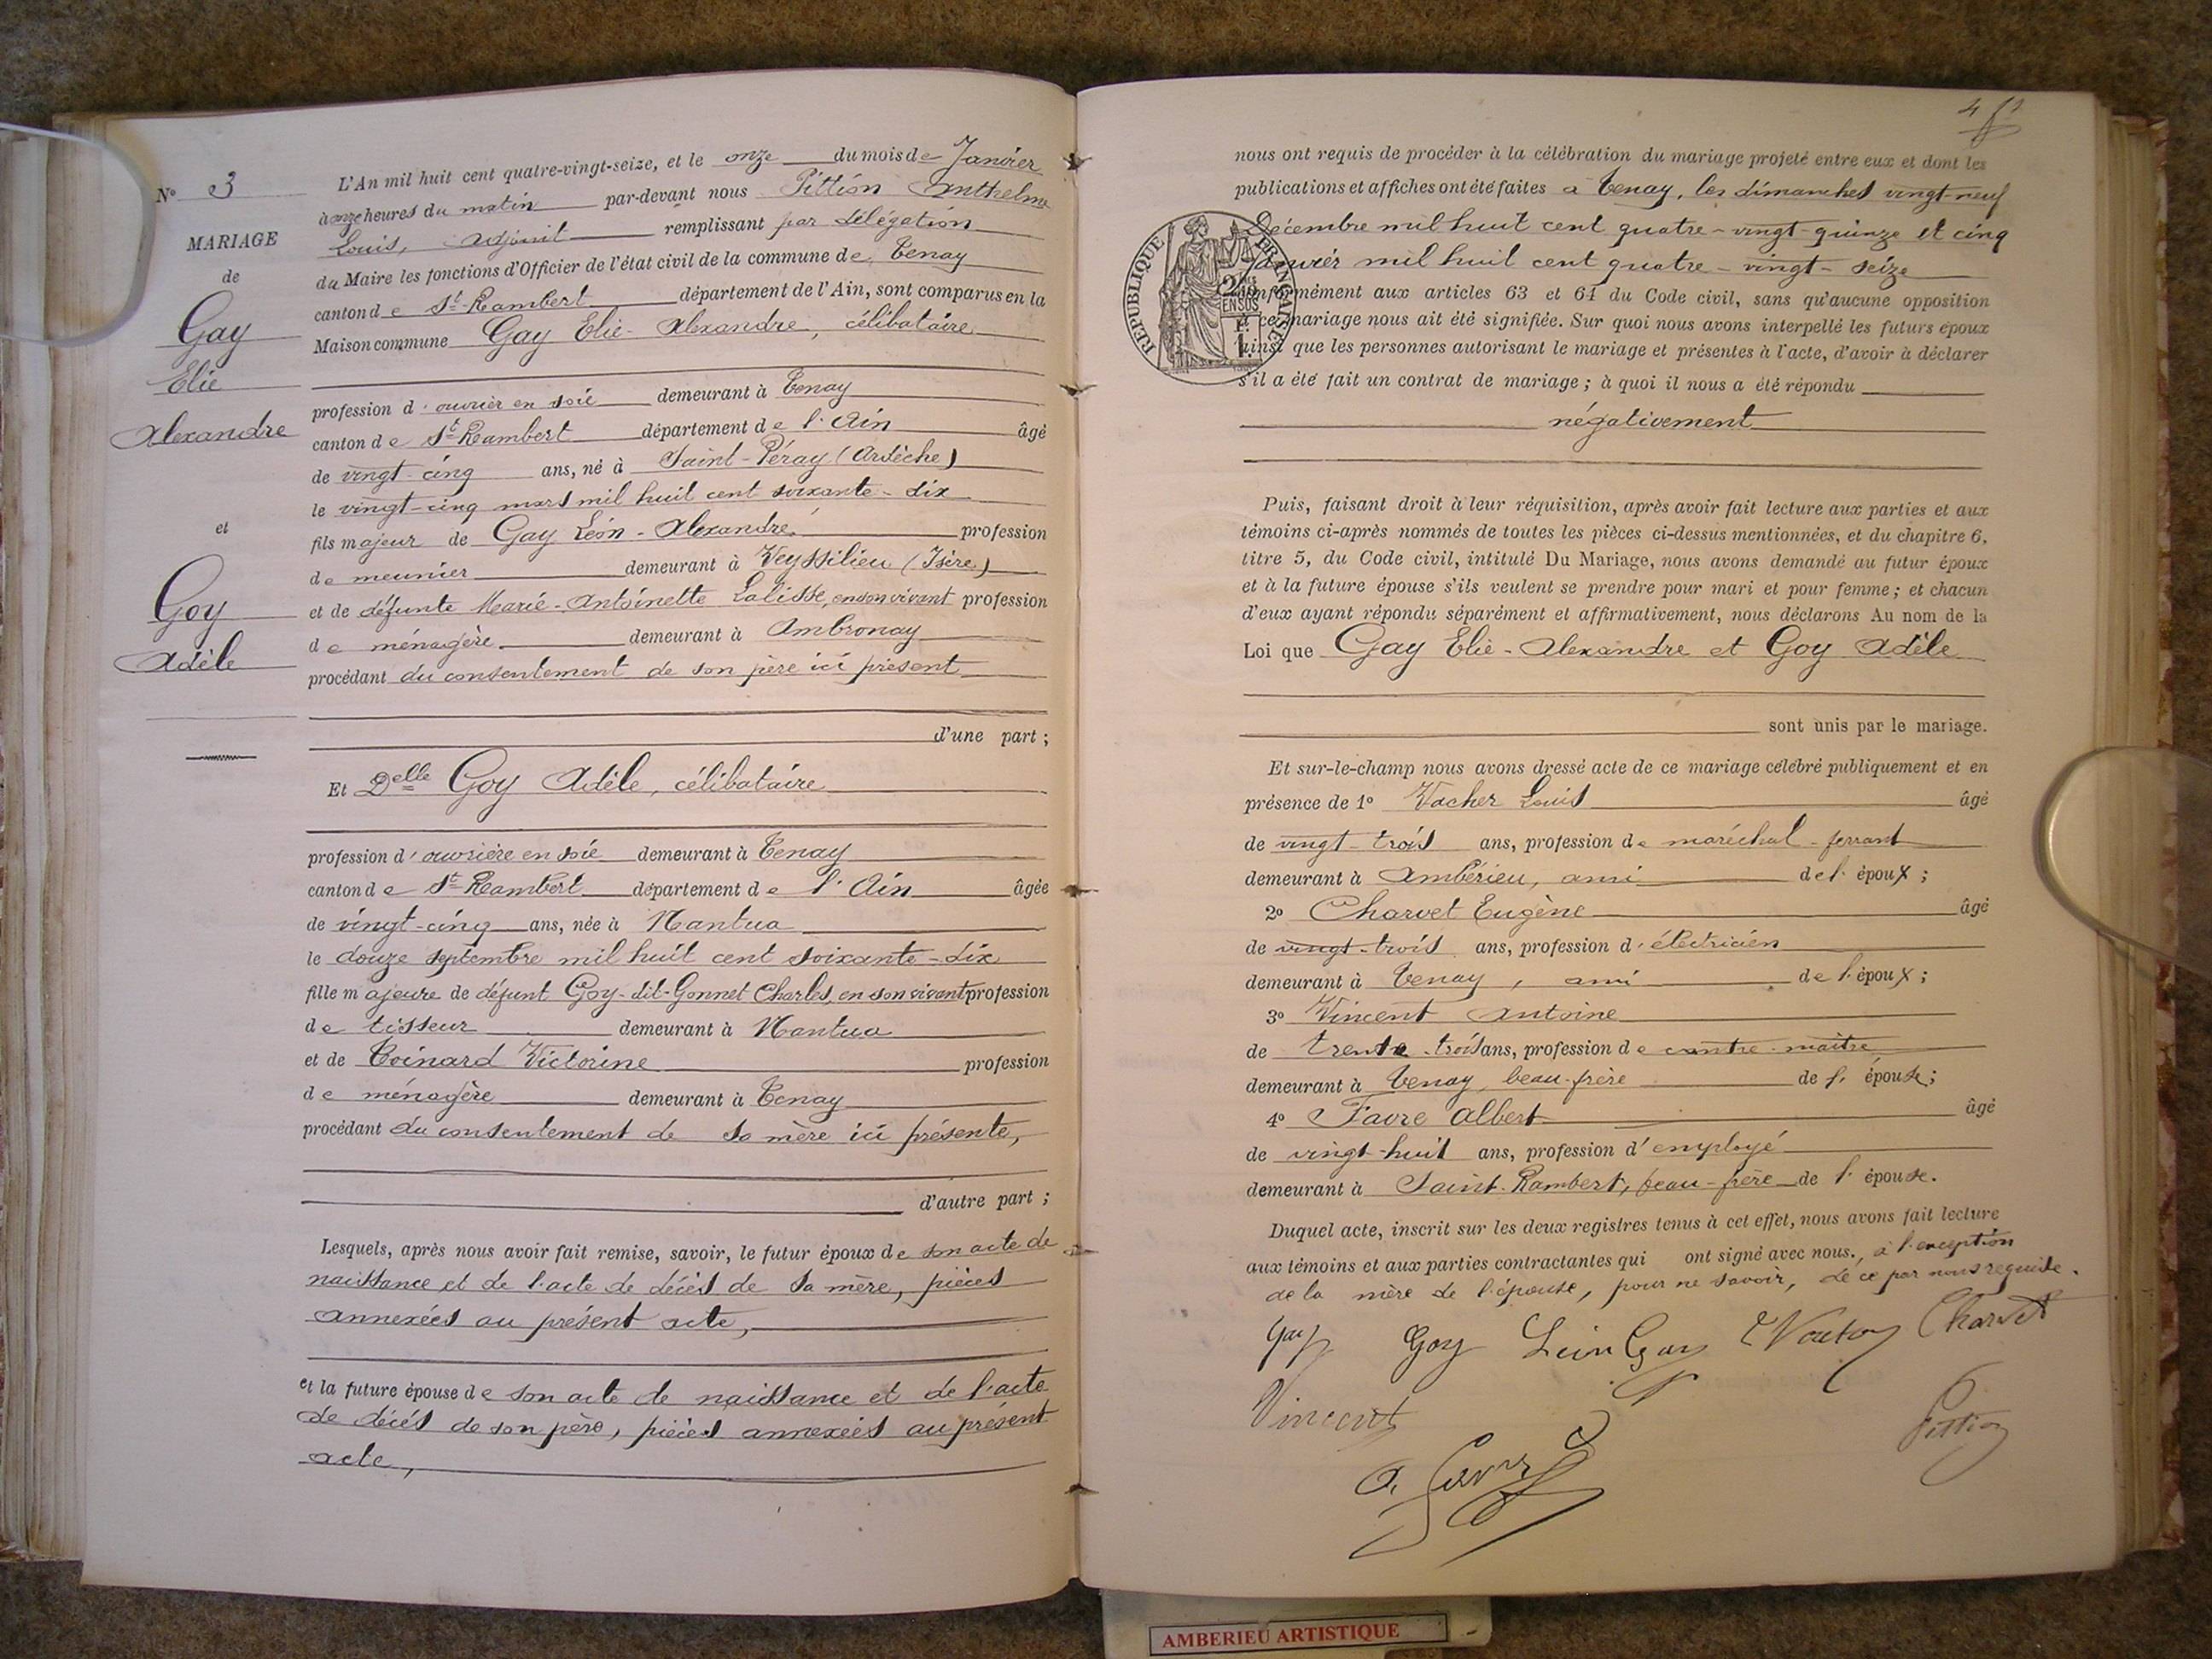 N° 3
MARIAGE
de
Gay
Elie
Alexandre
et
Goy
Adèle
L'An mil huit cent quatre-vingt-seize, et le onze du mois de Janvier
à onze heures du matin par-devant nous Pittion Anthelme
Louis, adjoint remplissant par délégation
du Maire les fonctions d'Officier de l'état civil de la commune de Tenay
canton de St-Rambert département de l'Ain, sont comparus en la
Maison commune Gay Elie-Alexandre, célibataire
profession d'ouvrier en soie demeurant à Tenay
canton de St-Rambert département de l'Ain âgé
de vingt-cinq ans, né à Saint-Péray (Ardèche)
le vingt-cinq mars mil huit cent soixante-dix
fils majeur de Gay Léon-Alexandre, profession
de meunier demeurant à Veyssilieu (Isère)
et de défunte Marie-Antoinette Lalisse, en son vivant profession
de ménagère demeurant à Ambronay
procédant du consentement de son père ici présent
d'une part ;
Et Delle Goy Adèle, célibataire
profession d'ouvrière en soie demeurant à Tenay
canton de St-Rambert département de l'Ain âgée
de vingt-cinq ans, née à Nantua
le douze septembre mil huit cent soixante-dix
fille majeure de défunt Goy-dit-Gonnet Charles, en son vivant profession
de tisseur demeurant à Nantua
et de Coinard Victorine profession
de ménagère demeurant à Tenay
procédant du consentement de sa mère ici présente,
d'autre part ;
Lesquels, après nous avoir fait remise, savoir, le futur époux de son acte de
naissance et de l'acte de décès de sa mère, pièces
annexées au présent acte,
et la future épouse de son acte de naissance et de l'acte
de décés de son père, pièces annexées au présent
acte,
4
nous ont requis de procéder à la célébration du mariage projeté entre eux et dont les
publications et affiches ont été faites à Tenay, les dimanches vingt-neuf
Décembre mil huit cent quatre-vingt-quinze et cinq
Janvier mil huit cent quatre-vingt-seize
conformément aux articles 63 et 64 du Code civil, sans qu'aucune opposition
à ce mariage nous ait été signifiée. Sur quoi nous avons interpellé les futurs époux
ainsi que les personnes autorisant le mariage et présentes à l'acte, d'avoir à déclarer
s'il a été fait un contrat de mariage ; à quoi il nous a été répondu
négativement
RÉPUBLIQUE FRANÇAISE
Puis, faisant droit à leur réquisition, après avoir fait lecture aux parties et aux
témoins ci-après nommés de toutes les pièces ci-dessus mentionnées, et du chapitre 6,
titre 5, du Code civil, intitulé Du Mariage, nous avons demandé au futur époux
et à la future épouse s'ils veulent se prendre pour mari et pour femme ; et chacun
d'eux ayant répondu séparément et affirmativement, nous déclarons Au nom de la
Loi que Gay Elie-Alexandre et Goy Adèle
sont unis par le mariage.
Et sur-le-champ nous avons dressé acte de ce mariage célébré publiquement et en
présence de 1° Vacher Louis âgé
de vingt-trois ans, profession de maréchal-ferrant
demeurant à Ambérieu, ami de l'époux ;
2° Charvet Eugène âgé
de vingt-trois ans, profession d'électricien
demeurant à Tenay, ami de l'époux ;
3° Vincent Antoine
de trente-trois ans, profession de contre-maître
demeurant à Tenay, beau-frère de l'épouse ;
4° Favre Albert âgé
de vingt-huit ans, profession d'employé
demeurant à Saint-Rambert, beau-frère de l'épouse.
Duquel acte, inscrit sur les deux registres tenus à cet effet, nous avons fait lecture
aux témoins et aux parties contractantes qui ont signé avec nous, à l'exception
de la mère de l'épouse, pour ne savoir, de ce par nous requise.
Gay Goy Léon Gay Charvet
Vincent Pittion
A. Favre
AMBERIEU ARTISTIQUE